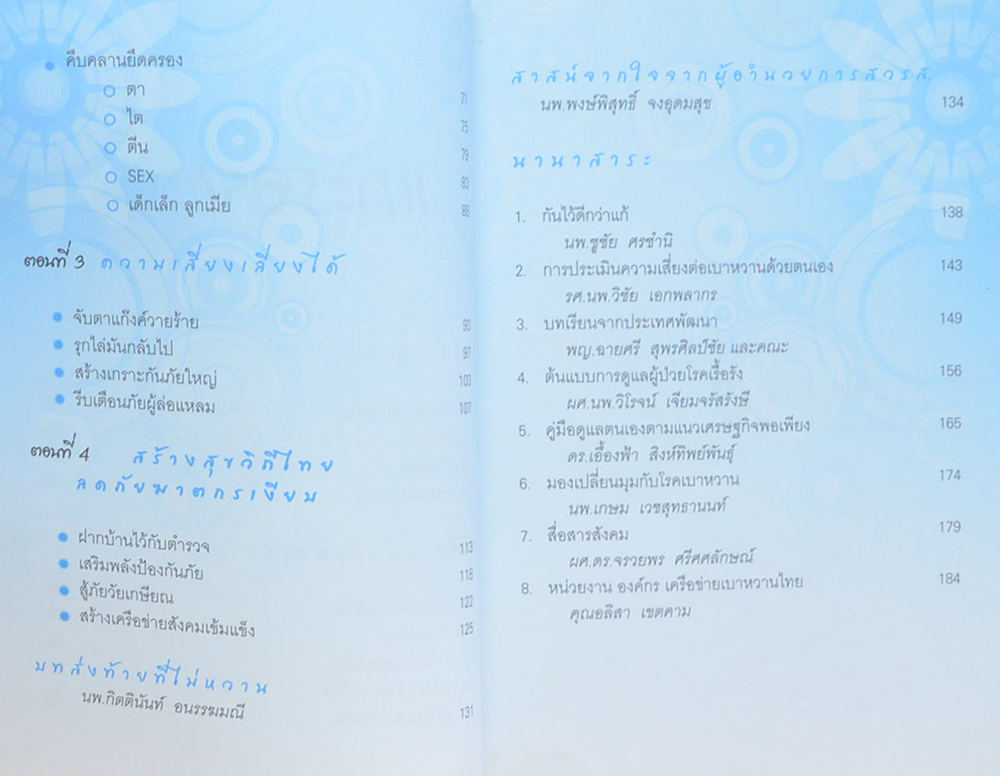 คืบคลานยึดครอง
ตา 71
ไต 75
ตีน 79
SEX 83
เด็กเล็ก ลูกเมีย 88
ตอนที่ 3 ความเสี่ยงเลี่ยงได้
จับตาแก๊งค์วายร้าย 93
รุกไล่มันกลับไป 97
สร้างเกราะกันภัยใหญ่ 103
รีบเตือนภัยผู้ล่อแหลม 107
ตอนที่ 4 สร้างสุขวิถีไทย
ลดภัยฆาตกรเงียบ
ฝากบ้านไว้กับตำรวจ 113
เสริมพลังป้องกันภัย 118
สู้ภัยวัยเกษียณ 122
สร้างเครือข่ายสังคมเข้มแข็ง 125
บทส่งท้ายที่ไม่หวาน
นพ.กิตตินันท์ อนรรฆมณี 131
สาสน์จากใจจากผู้อำนวยการสวรส.
นพ.พงษ์พิสุทธิ์ จงอุดมสุข 134
นานาสาระ
1. กันไว้ดีกว่าแก้ 138
นพ.ชูชัย ศรชำนิ
2. การประเมินความเสี่ยงต่อเบาหวานด้วยตนเอง 143
รศ.นพ.วิชัย เอกพลากร
3. บทเรียนจากประเทศพัฒนา 149
พญ.ฉายศรี สุพรศิลป์ชัย และคณะ
4. ต้นแบบการดูแลผู้ป่วยโรคเรื้อรัง 156
ผศ.นพ.วิโรจน์ เจียมจรัสรังษี
5. คู่มือดูแลตนเองตามแนวเศรษฐกิจพอเพียง 165
ดร.เอื้องฟ้า สิงห์ทิพย์พันธุ์
6. มองเปลี่ยนมุมกับโรคเบาหวาน 174
นพ.เกษม เวชสุทธานนท์
7. สื่อสารสังคม 179
ผศ.ดร.จรวยพร ศรีศศลักษณ์
8. หน่วยงาน องค์กร เครือข่ายเบาหวานไทย 184
คุณอลิสา เขตคาม